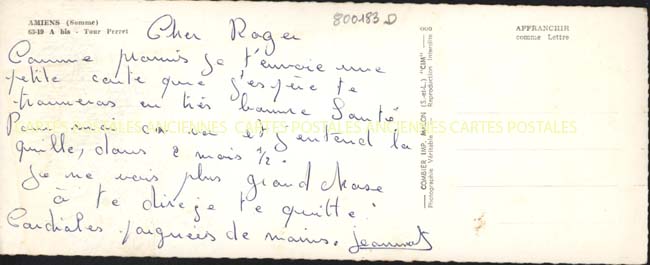 AMIENS (Somme)
63-19 A bis - Tour Perret
800183 D
Cher Roger
Comme promis je t'envoie une
petite carte que j'espère te
trouveras en très bonne Santé
Pour moi ça va et j'entend la
quille, dans 2 mois 1/2.
Je ne vois plus grand chose
à te dire je te quitte
Cordiales poignées de mains.
CARTES POSTALES ANCIENNES CARTES POSTALES ANCIENNES CARTES POSTALES
COMBIER IMP. MACON (S.-et-L.) "CIM"
Photographie Véritable Reproduction Interdite
AFFRANCHIR
comme Lettre